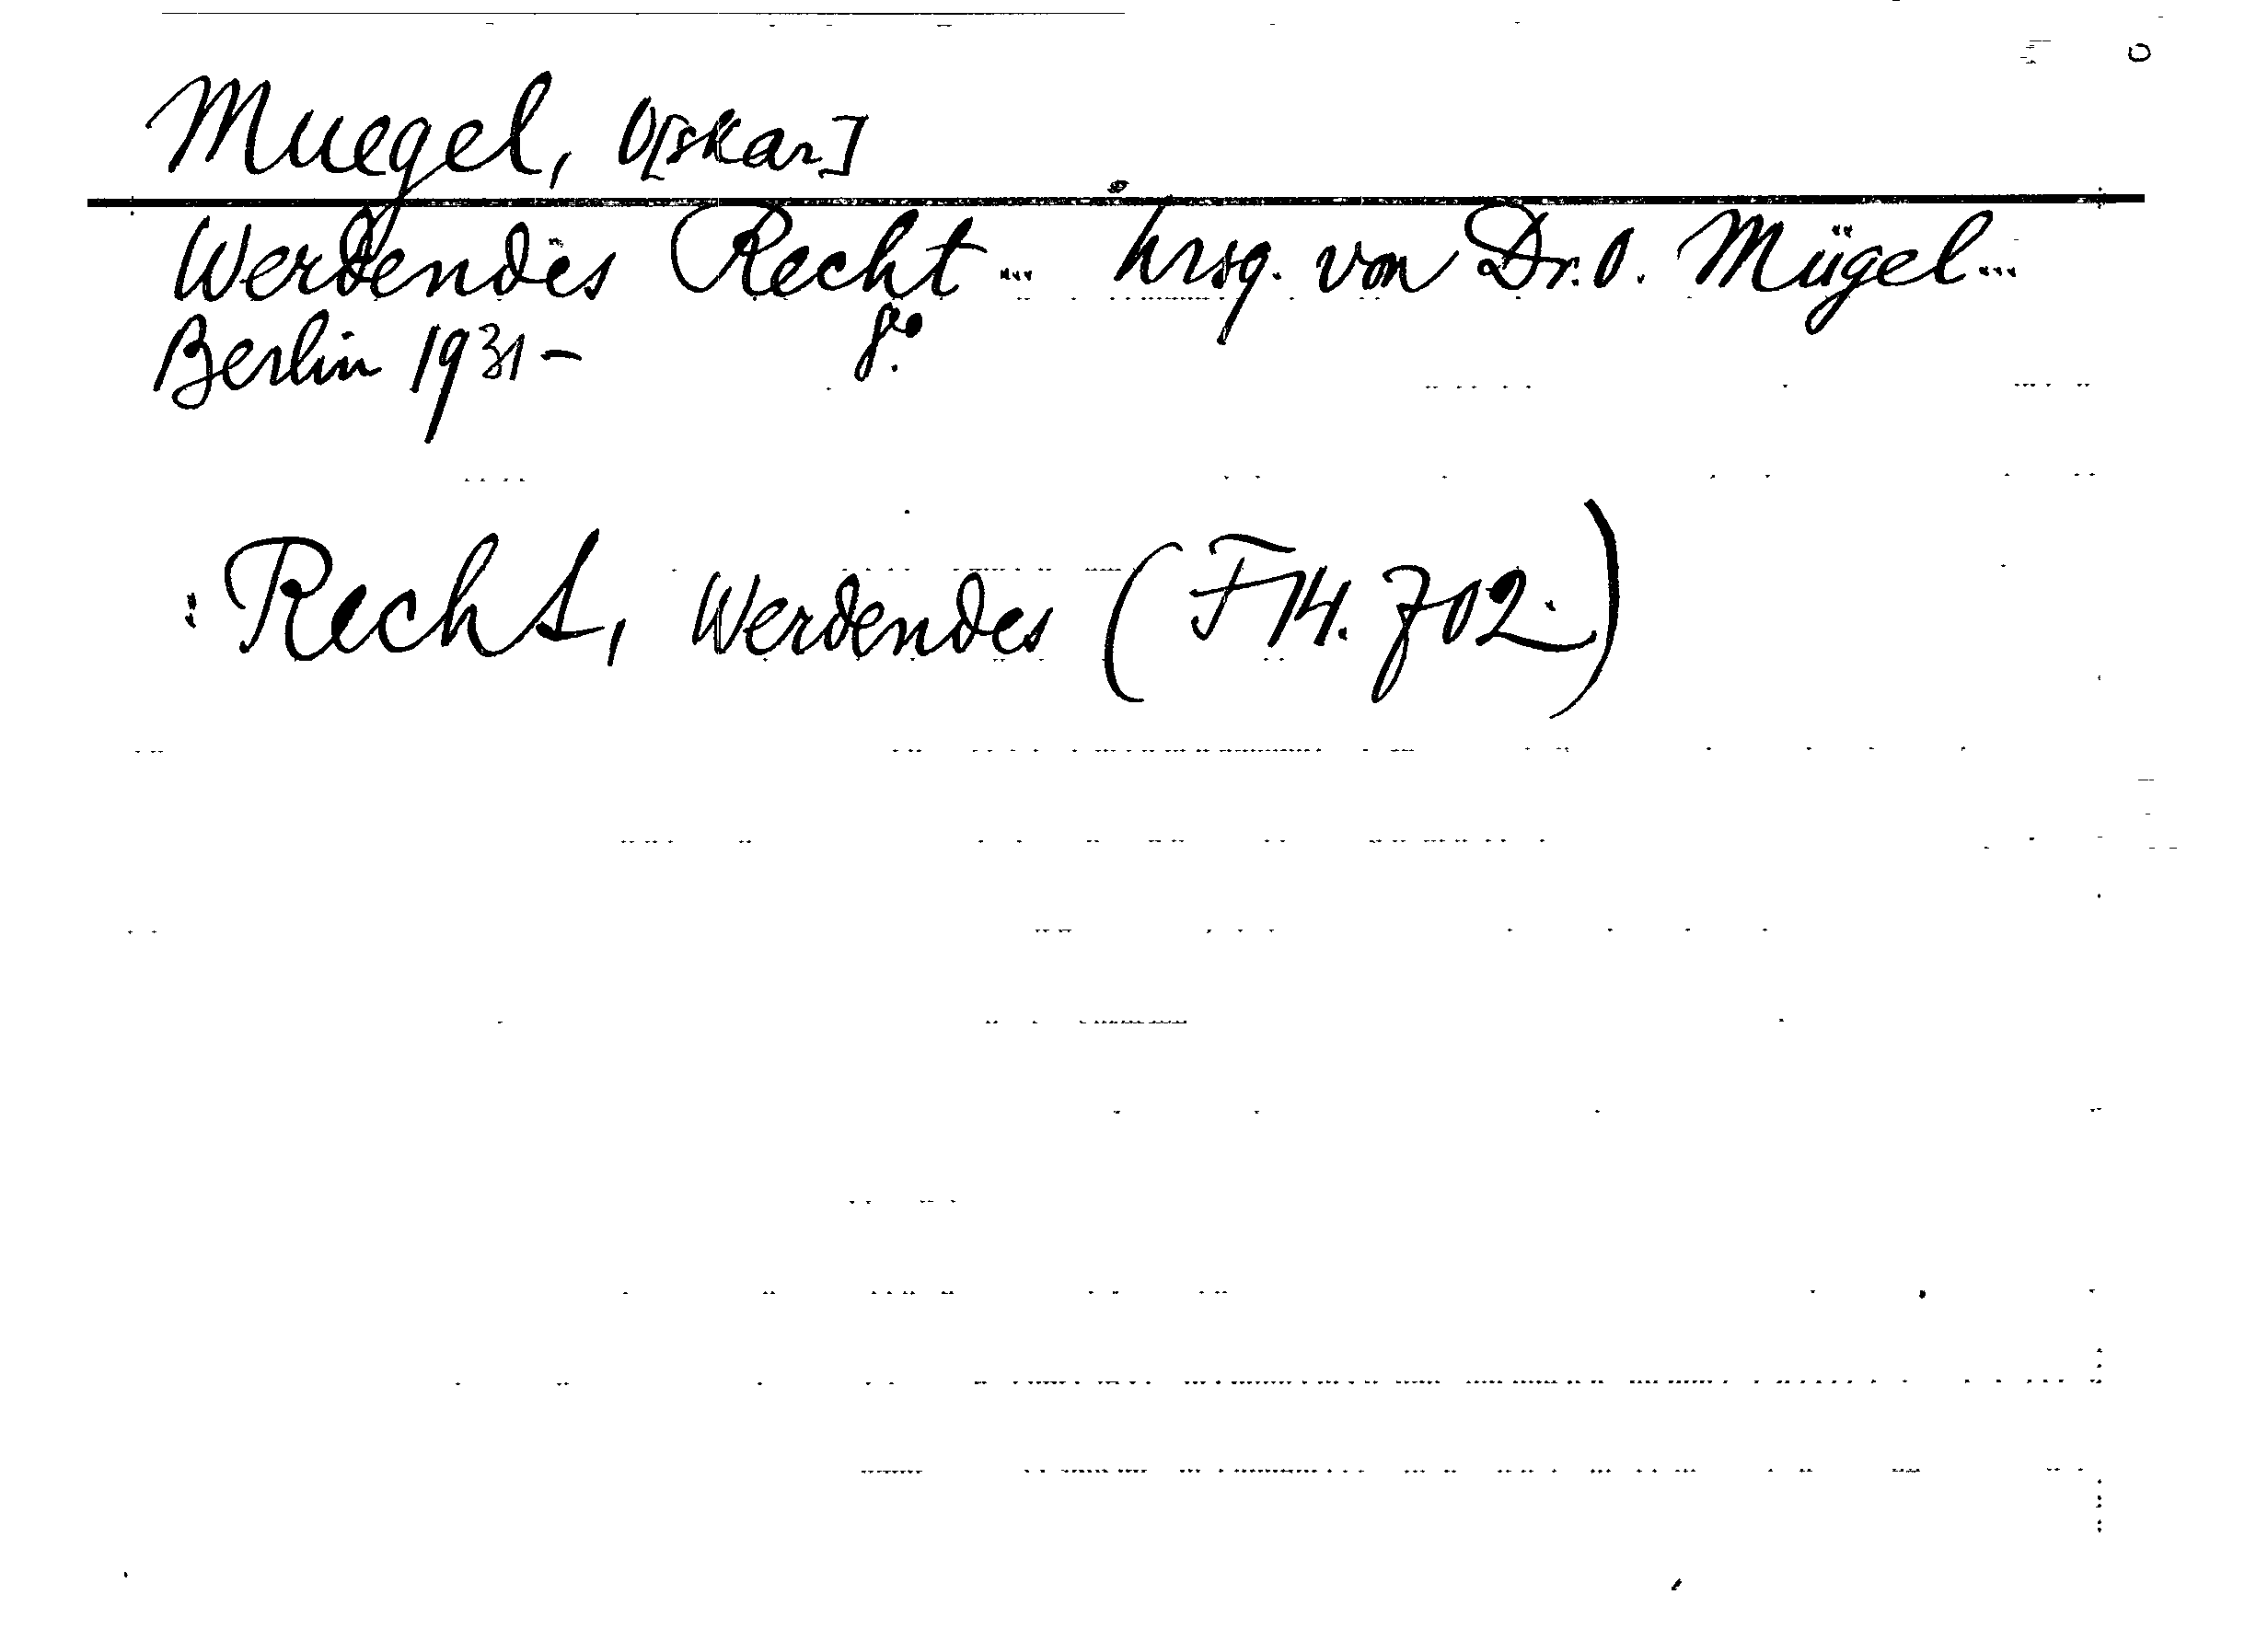 Muegel, O[skar]
Werdendes Recht ... hrsg. von Dr. O. Mügel...
Berlin 1931- 8°.
: Recht, Werdendes (F14.702.)